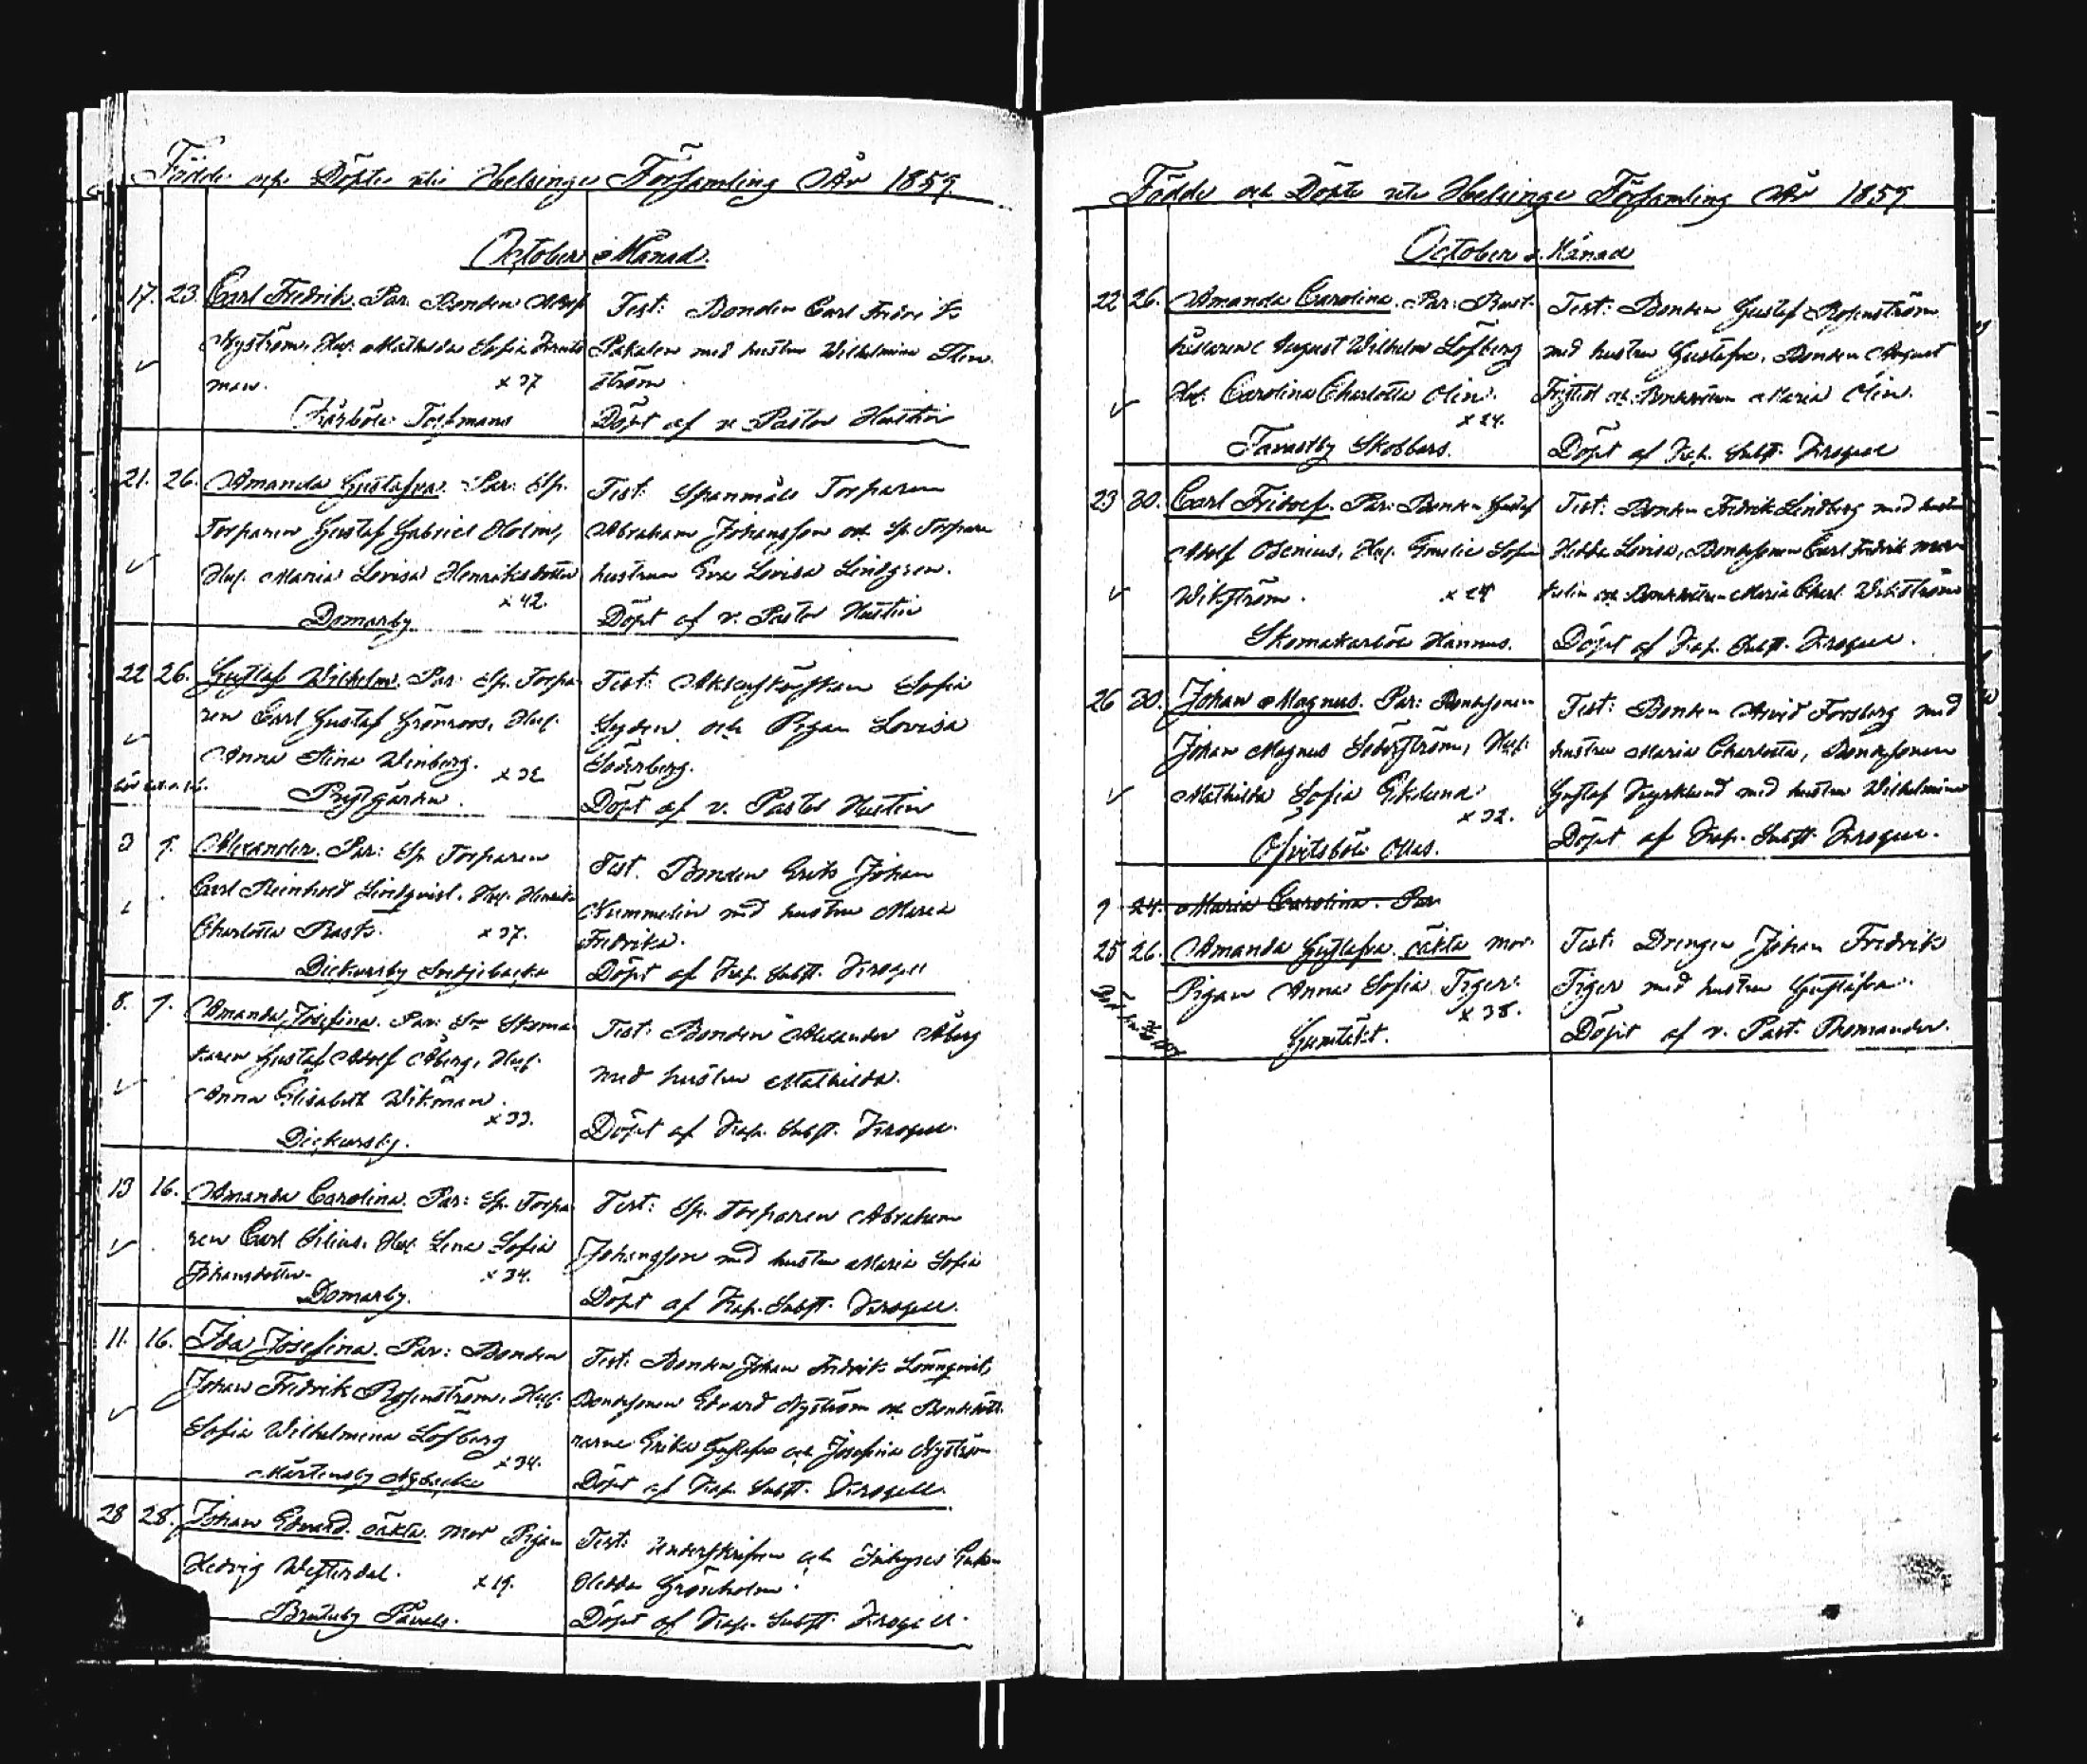 Födde och Döpte uti Helsinge Församling År 1859
October Månad.
17. 23. Carl Fredrik. Par: Bonden Adolf
Nyström, Hus. Mathilda Sofia
man. x 37
Tolfmans
Test: Bonden Carl Fredrik
med hustru Wilhelmina Sten
ström
Döpt af v. Pastor Hustin
21. 26. Amanda Gustafva. Par: Sp.
Torparen Gustaf Gabriel Holm,
Hus. Maria Lovisa Henriksdotter
x 42.
Domarby
Test: Spanmåls Torparen
Abraham Johansson och Sp. Torpare
hustrun Eva Lovisa Lindgren.
Döpt af v. Pastor Hustin
22 26. Gustaf Wilhelm. Par: Sp. Torpa
ren Carl Gustaf Grönroos, Hus.
Anna Stina Winberg. x 32
Prestgården.
Test: Sofia
och Pigan Lovisa
Söderberg.
Döpt af v. Pastor Hustin
3 9. Alexander. Par: Sp Torparen
Carl Reinhold Lindqvist, Hus. Henrika
Charlotta Rask. x 37.
Dickursby
Test. Bonden Erik Johan
Nummelin med hustru Maria
Fredrika.
Döpt af Kap. Subst. Krogell
8. 9. Amanda Josefina. Par: Skoma
karen Gustaf Adolf Åberg, Hus.
Anna Elisabeth Wikman.
x 33.
Dickursby.
Test: Bonden Alexander Åberg
med hustru Mathilda.
Döpt af Kap. Subst. Krogell.
13 16. Amanda Carolina. Par: Sp. Torpa
ren Carl Silius, Hus. Lena Sofia
Johansdotter. x 34.
Domarby.
Test: Sp. Torparen Abraham
Johansson med hustru Maria Sofia
Döpt af Kap. Subst. Krogell.
11. 16. Ida Josefina. Par: Bonden
Johan Fredrik Rosenström, Hus.
Sofia Wilhelmina Löfberg
x 34.
Mårtensby Nybacka
Test: Bonden Johan Fredrik Lönnqvist,
Bondesonen Edvard Nyström och Bondedött
rarne Erika Gustafva och Josefina Nyström
Döpt af Kap. Subst. Krogell.
28 28. Johan Edvard. oäkta. Mor Pigan
Hedvig Westerdal. x 19.
Test: Underskrifven och Inhyses Enkan
Hedda Grönholm.
Döpt af Kap. Subst. Krogell.
Födde och Döpte uti Helsinge Församling År 1859
October Månad
22 26. Amanda Carolina. Par: Rust-
hållaren August Wilhelm Löfberg
Hus. Carolina Charlotta Olin.
x 24.
Tavastby Skobbars.
Test: Bonden Gustaf Rosenström
med hustru Gustafva, Bonden August
och Bondedottren Maria Olin.
Döpt af Kap. Subst. Krogell
23 30. Carl Fridolf. Par: Bonden Gustaf
Adolf Osenius, Hus. Emelie Sofia
Wikström. x 24
Skomakarböle Hannus.
Test: Bonden Fredrik Lindberg med hustru
Hedda Lovisa, Bondesonen Carl Fredrik
och Bondedottren Maria Charl. Wikström
Döpt af Kap. Subst. Krogell.
26 30. Johan Magnus. Par: Bondesonen
Johan Magnus Söderström, Hus.
Mathilda Sofia Eklund
x 32.
Ollas.
Test: Bonden Arvid Forsberg med
hustru Maria Charlotta, Bondesonen
Gustaf Kyrklund med hustru Wilhelmina
Döpt af Kap. Subst. Krogell.
9 24. Maria Carolina. Par
25 26. Amanda Gustafva. oäkta Mor.
Pigan Anna Sofia Tiger.
x 38.
Gumtäkt.
Test: Drengen Johan Fredrik
Tiger med hustru Gustafva.
Döpt af v. Past. Bomander.